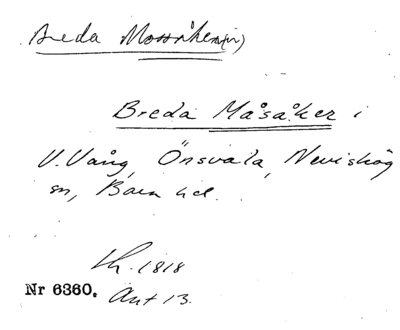 Breda Mossåker(n)
Breda Måsåker i
V. Vång, Önsvala, Nevishög
sn, Bara hd.
Lh. 1818
Ant 13.
Nr 6360.